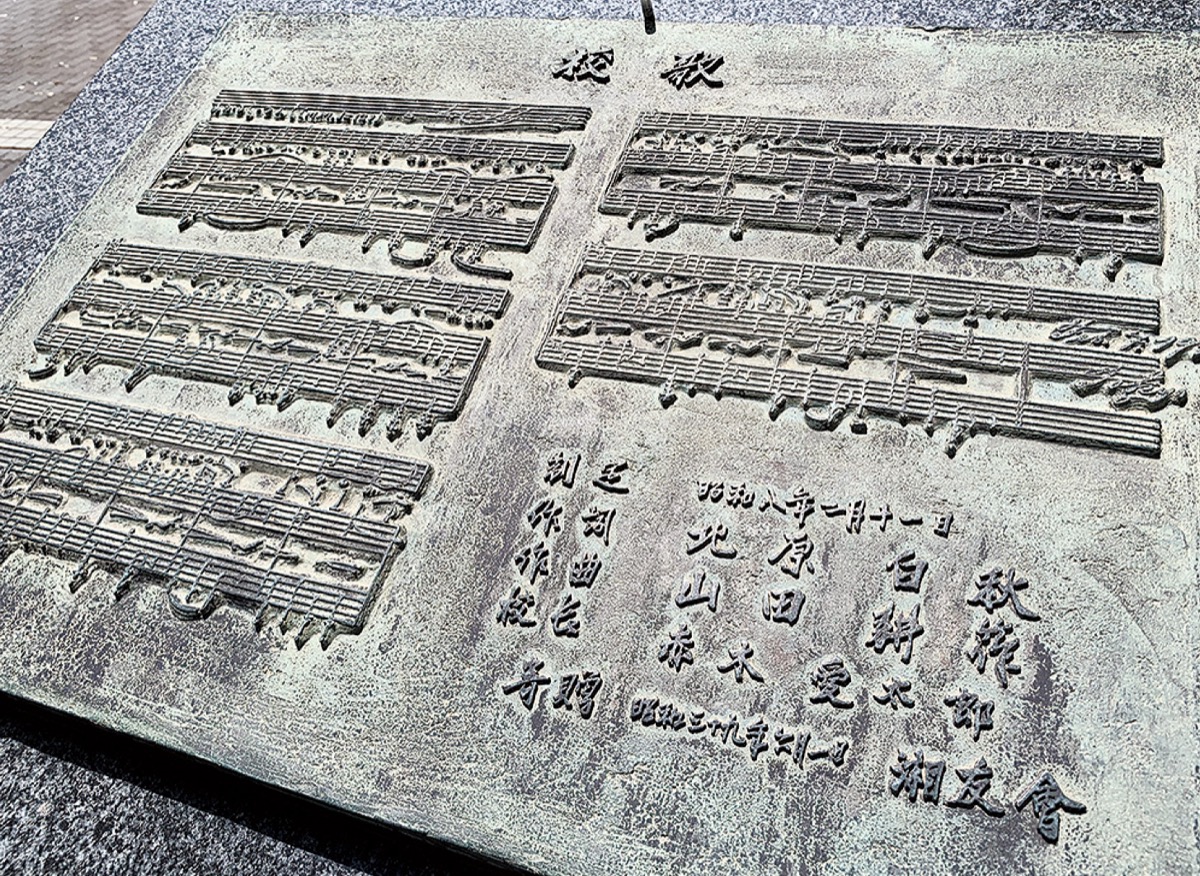 校歌
制定 昭和八年二月十一日
作詞 北原白秋
作曲 山田耕筰
校長 赤木愛太郎
寄贈 昭和三十九年六月一日
湘友會